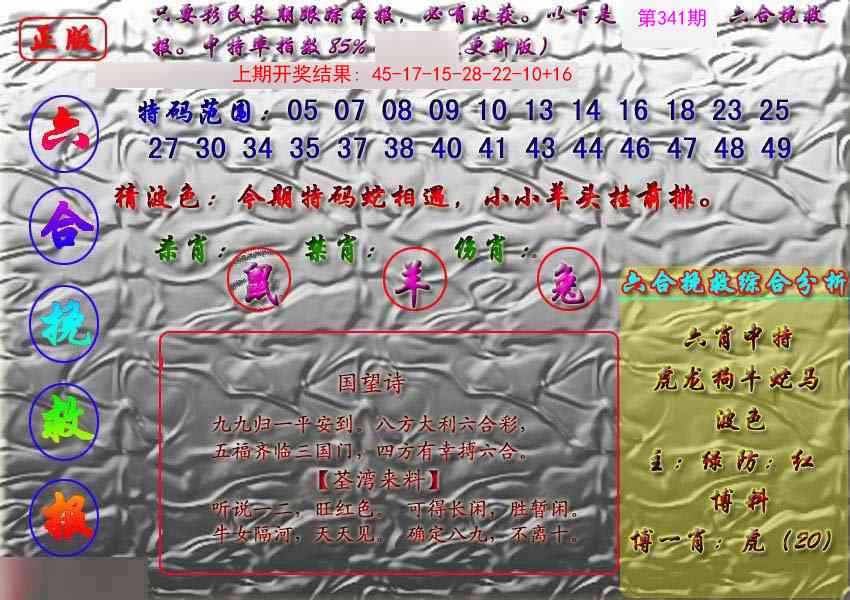 正版
只要彩民长期跟踪本报，必有收获。以下是 第341期 六合挽救
报。中特率指数85% 更新版）
上期开奖结果: 45-17-15-28-22-10+16
六合挽救报
特码范围：05 07 08 09 10 13 14 16 18 23 25
27 30 34 35 37 38 40 41 43 44 46 47 48 49
猜波色：今期特码蛇相遇，小小羊头挂前排。
杀肖：鼠 禁肖：羊 伤肖：兔
国望诗
九九归一平安到。八方大利六合彩，
五福齐临三国门，四方有幸搏六合。
【荃湾来料】
听说一二，旺红色。 可得长闲，胜暂闲。
牛女隔河，天天见。 确定八九，不离十。
六合挽救综合分析
六肖中特
虎龙狗牛蛇马
波色
主：绿防：红
博料
博一肖：虎（20）